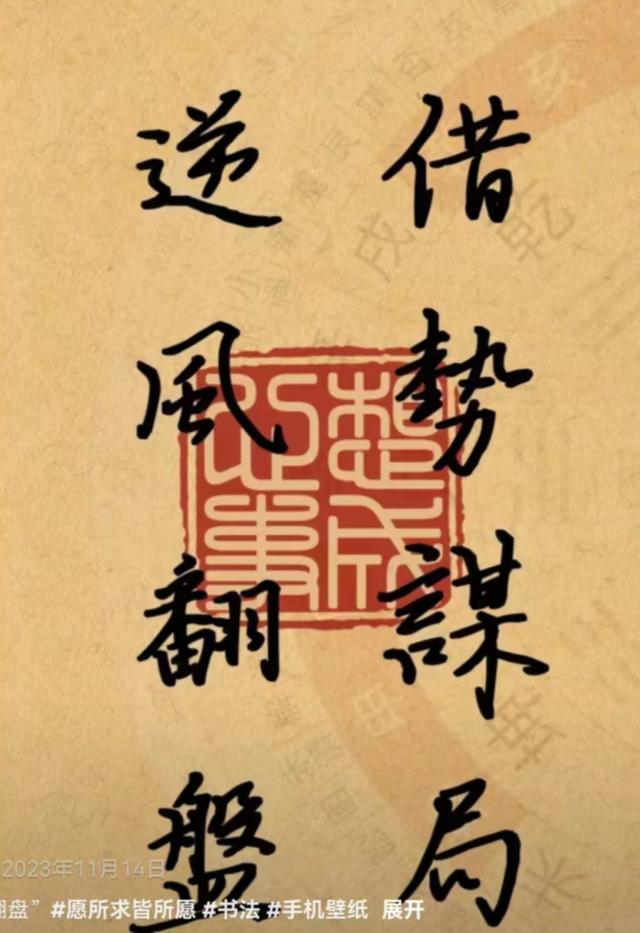 借勢謀局
逆風翻盤
心想
事成
亥
乾
戌
2023年11月14日
翻盘”#愿所求皆所愿 #书法 #手机壁纸 展开